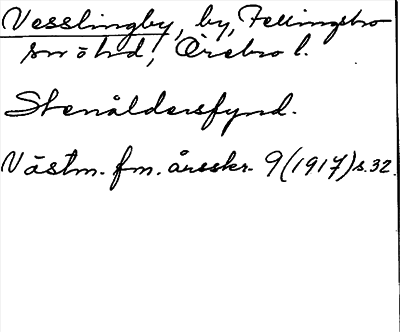 Vesslingby, by, Fellingsbro
sn o hd, Örebro l.
Stenåldersfynd.
Västm. fm. årsskr. 9 (1917) s. 32.